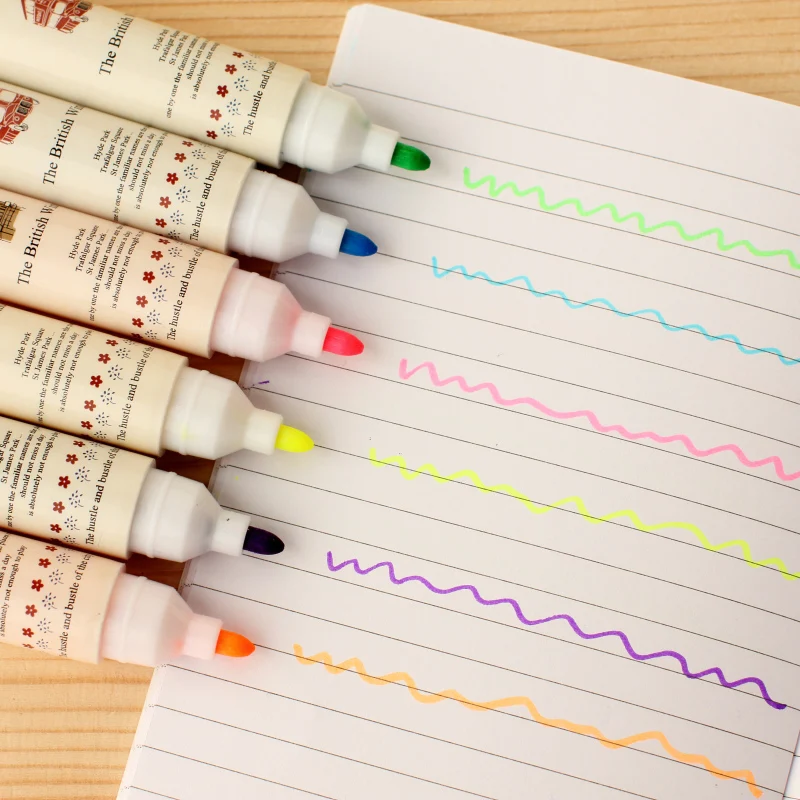 The British
Hyde Park
Trafalgar Squ
St James Park...
one by one the familiar nam
should not miss a
is absolutely not enou
The hustle and bus
The British W
Hyde Park
Trafalgar Square
St James Park...
by one the familiar names
should not miss a day
is absolutely not enough to
The hustle and bustle of
The British W
Hyde Park
Trafalgar Square
St James Park...
by one the familiar names are
should not miss a day
is absolutely not enough to
The hustle and bustle of
Hyde Park
Trafalgar Square
St James Park...
by one the familiar names are
should not miss a day
is absolutely not enough to
The hustle and bustle of the
Square
St James Park...
by one the familiar names are
should not miss a day
is absolutely not enough to play
The hustle and bustle of the
names are
miss a day
absolutely not enough to play
The hustle and bustle of the